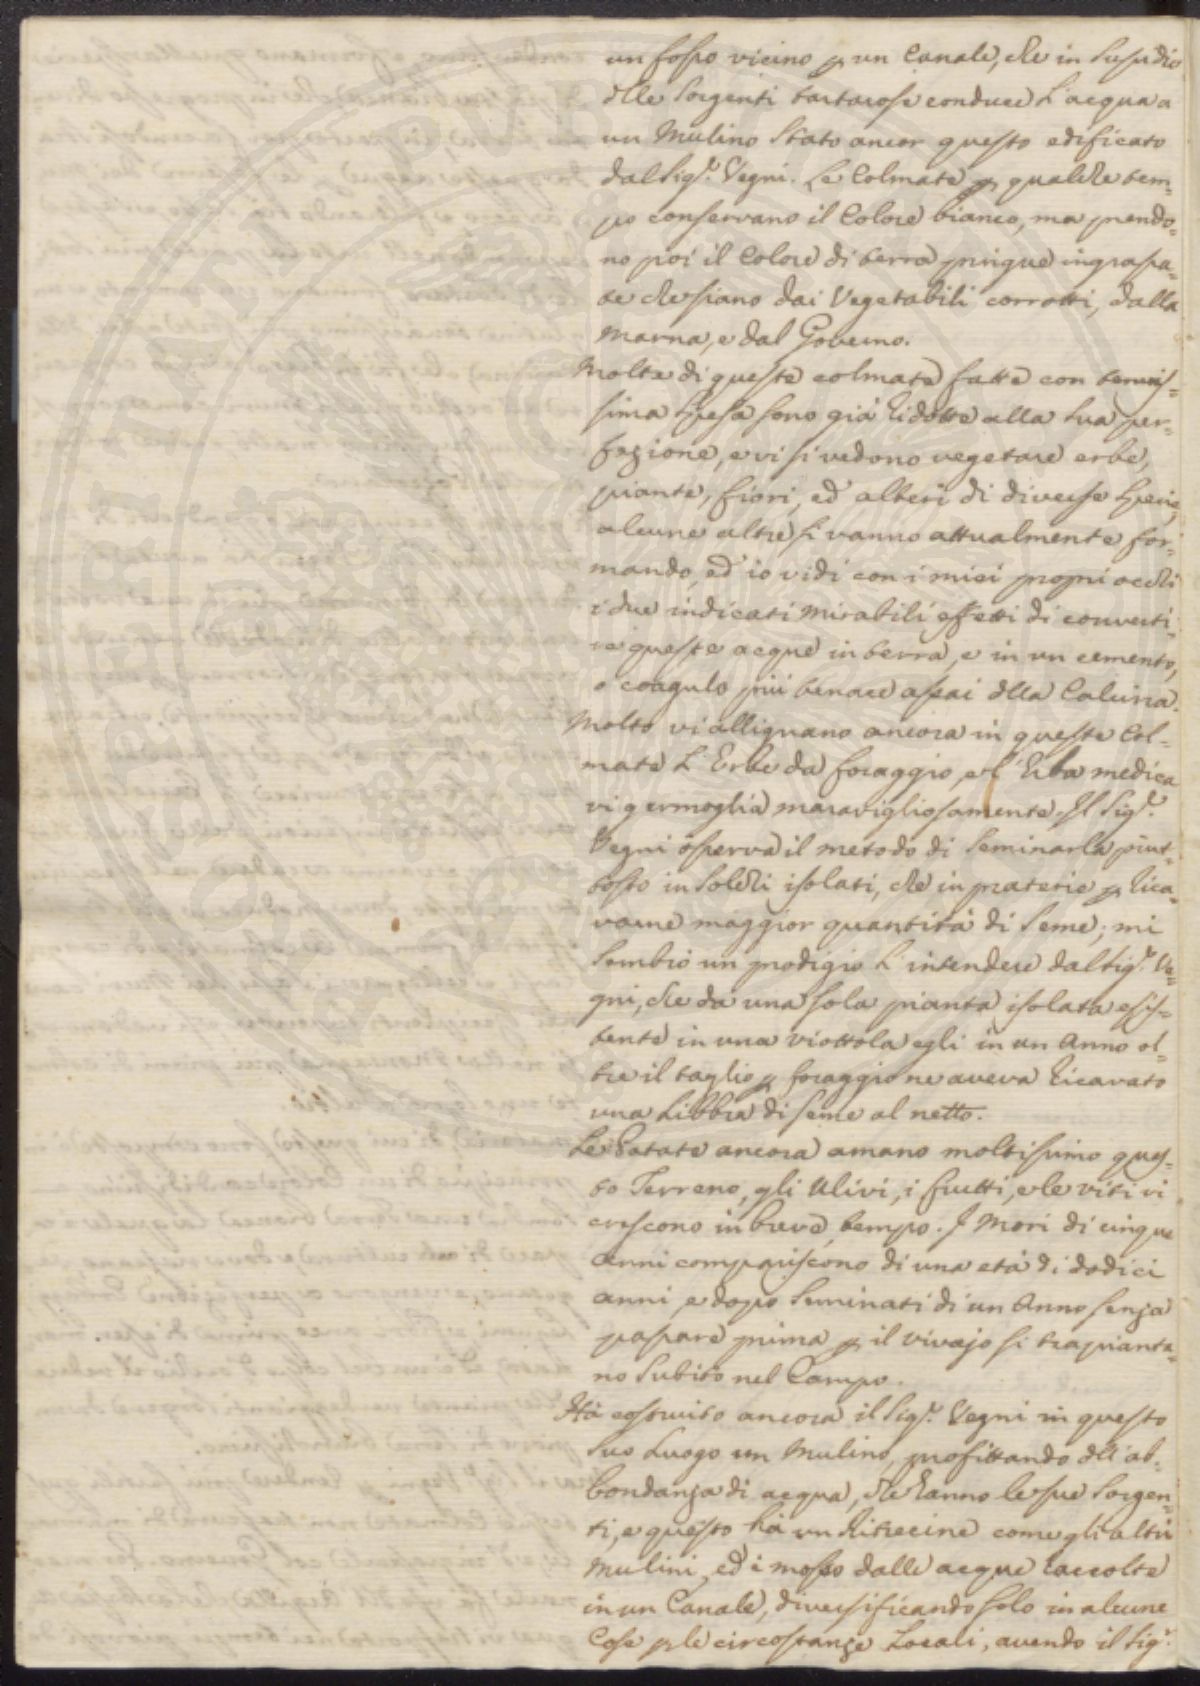 un fosso vicino p un Canale, che in susidio
dlle Sorgenti tartarose conduce l'acqua a
un Mulino stato ancor questo edificato
dal Sig.r Vegni. Le Colmate p qualche tem=
po conservano il Colore bianco, ma prendo=
no poi il Colore di terra pingue ingrassa=
te che siano dai Vegetabili corrotti, dalla
Marna, e dal Governo.
Molte di queste colmate fatte con tenuis=
sima spesa sono già ridotte alla sua per=
fezione, e vi si vedono vegetare erbe,
piante, fiori, ed alberi di diverse specie,
alcune altre si vanno attualmente for=
mando, ed io vidi con i miei propri occhi
i due indicati mirabili effetti di converti=
re queste acque in terra, e in un cemento,
o coagulo più tenace assai dlla Calcina.
Molto vi allignano ancora in queste Col=
mate l'Erbe da foraggio, e l'Erba medica
vi germoglia maravigliosamente. Il Sig.r
Vegni osserva il metodo di seminarla piut=
tosto in solchi isolati, che in praterie p rica=
varne maggior quantità di seme; mi
sembrò un prodigio l'intendere dal Sig.r Ve=
gni, che da una sola pianta isolata esis=
tente in una viottola egli in un Anno ol=
tre il taglio p foraggio ne aveva ricavato
una Libbra di seme al netto.
Le Patate ancora amano moltissimo ques=
to Terreno, gli Ulivi, i frutti, e le viti vi
crescono in breve tempo. I Mori di cinque
anni compariscono di una età di dodici
anni e dopo seminati di un Anno senza
passare prima p il vivajo si trapianta=
no subito nel Campo.
Hà costruito ancora il Sig.r Vegni in questo
suo Luogo un Mulino, profittando dll'ab=
bondanza di acqua, che hanno le sue Sorgen=
ti, e questo hà un Ritrecine come gli altri
Mulini, ed è mosso dalle acque raccolte
in un Canale, diversificando solo in alcune
Cose p le circostanze Locali, avendo il Sig.r